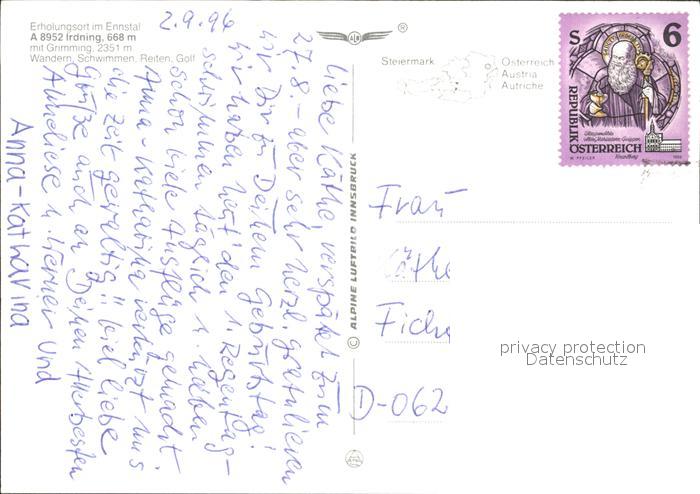 Erholungsort im Ennstal
A 8952 Irdning, 668 m
mit Grimming, 2351 m
Wandern, Schwimmen, Reiten, Golf
®
2.9.94
Liebe Käthe, verspätet zum
27.8. – aber sehr herzl. gratulieren
wir Dir zu Deinem Geburtstag!
Wir haben heut den 1. Regentag –
schwimmen täglich u. haben
schon viele Ausflüge gemacht
Anna-Katharina verkürzt uns
die Zeit gewaltig!! Viel liebe
Grüße auch an Deinen Allerbesten
Anneliese u. Werner und
Anna-Katharina
© ALPINE LUFTBILD INNSBRUCK
Steiermark
Österreich
Austria
Autriche
S 6
REPUBLIK
ÖSTERREICH
W. PFEILER
Frau
Käthe
Fich
D-062
privacy protection
Datenschutz